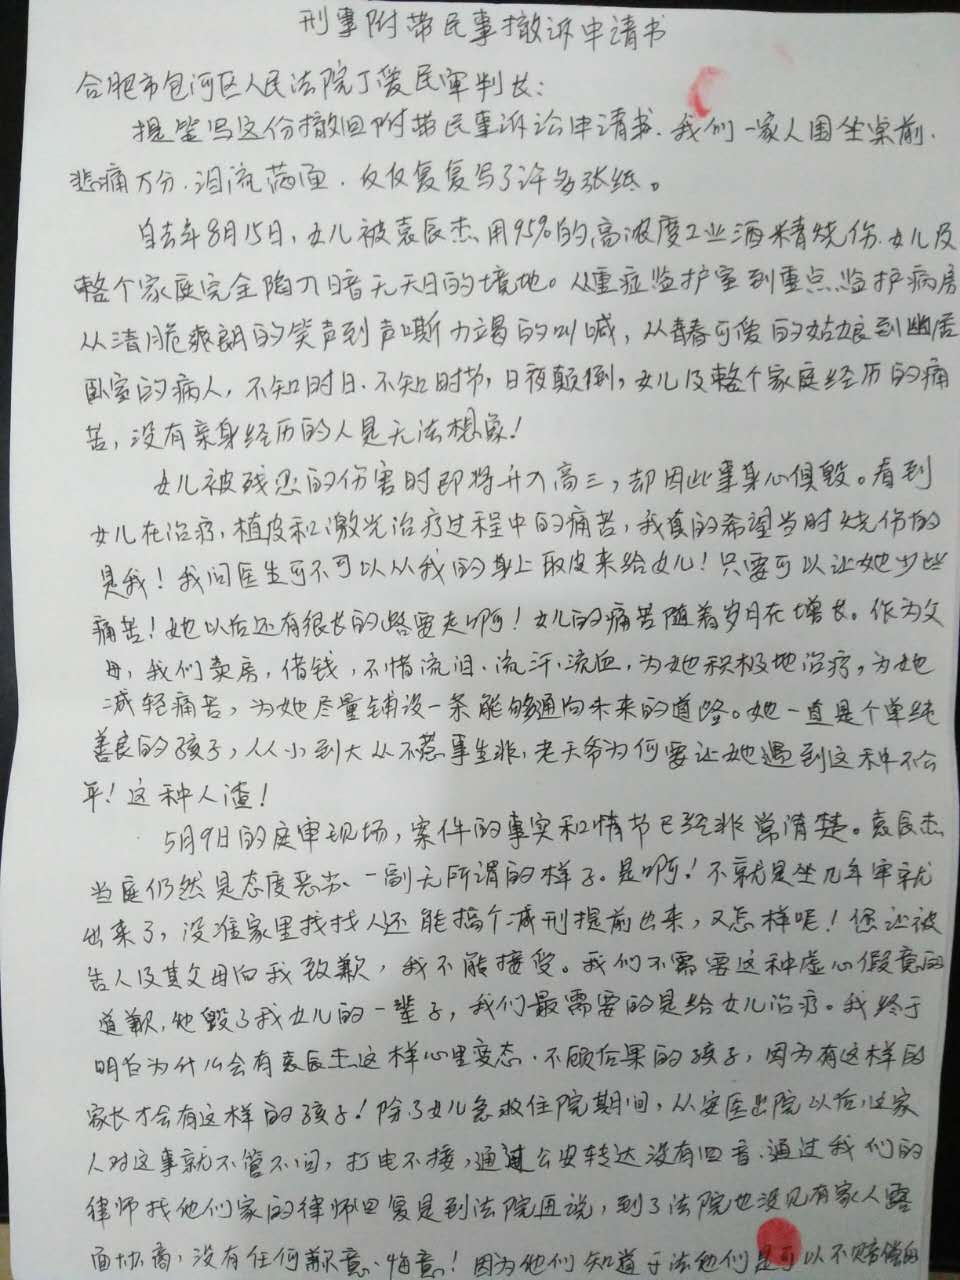 刑事附带民事撤诉申请书
合肥市包河区人民法院丁爱民审判长：
提笔写这份撤回附带民事诉讼申请书，我们一家人围坐桌前，
悲痛万分，泪流满面，反反复复写了许多张纸。
自去年8月15日，女儿被袁辰杰用95%的高浓度工业酒精烧伤，女儿及
整个家庭完全陷入暗无天日的境地。从重症监护室到重点监护病房
从清脆爽朗的笑声到声嘶力竭的叫喊，从青春可爱的姑娘到幽居
卧室的病人，不知时日、不知时节，日夜颠倒，女儿及整个家庭经历的痛
苦，没有亲身经历的人是无法想象！
女儿被残忍的伤害时即将升入高三，却因此事身心俱毁。看到
女儿在治疗，植皮和激光治疗过程中的痛苦，我真的希望当时烧伤的
是我！我问医生可不可以从我的身上取皮来给女儿！只要可以让她少些
痛苦！她以后还有很长的路要走啊！女儿的痛苦随着岁月在增长。作为父
母，我们卖房，借钱，不惜流泪、流汗、流血，为她积极地治疗，为她
减轻痛苦，为她尽量铺设一条能够通向未来的道路。她一直是个单纯
善良的孩子，从小到大从不惹事生非，老天爷为何要让她遇到这种不会
年！这种人渣！
5月9日的庭审现场，案件的事实和情节已经非常清楚。袁辰杰
当庭仍然是态度恶劣、一副无所谓的样子。是啊！不就是坐几年牢就
出来了，没准家里找找人还能搞个减刑提前出来，又怎样呢！您让被
告人及其父母向我致歉，我不能接受。我们不需要这种虚心假意的
道歉，他毁了我女儿的一辈子，我们最需要的是给女儿治疗。我终于
明白为什么会有袁辰杰这样心里变态、不顾后果的孩子，因为有这样的
家长才会有这样的孩子！除了女儿急救住院期间，从安医出院以后，这家
人对这事就不管不问，打电不接，通过公安转达没有回音，通过我们的
律师找他们家的律师回复是到法院再说，到了法院也没见有家人露
面协商，没有任何歉意、悔意！因为他们知道于法他们是可以不赔偿的